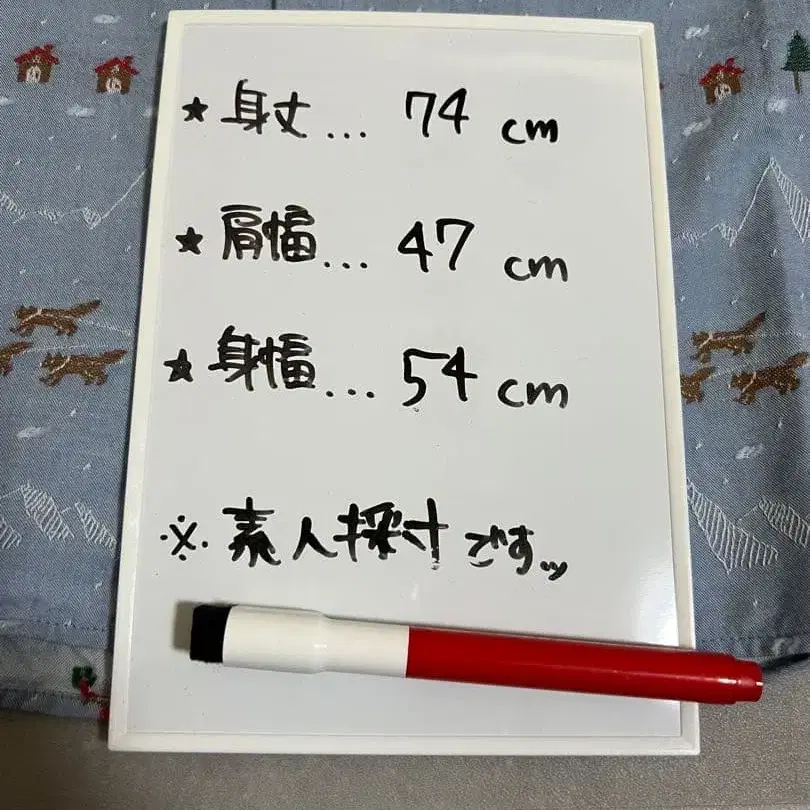 ★身丈... 74 cm
★肩幅... 47 cm
★身幅... 54 cm
※素人採寸ですッ